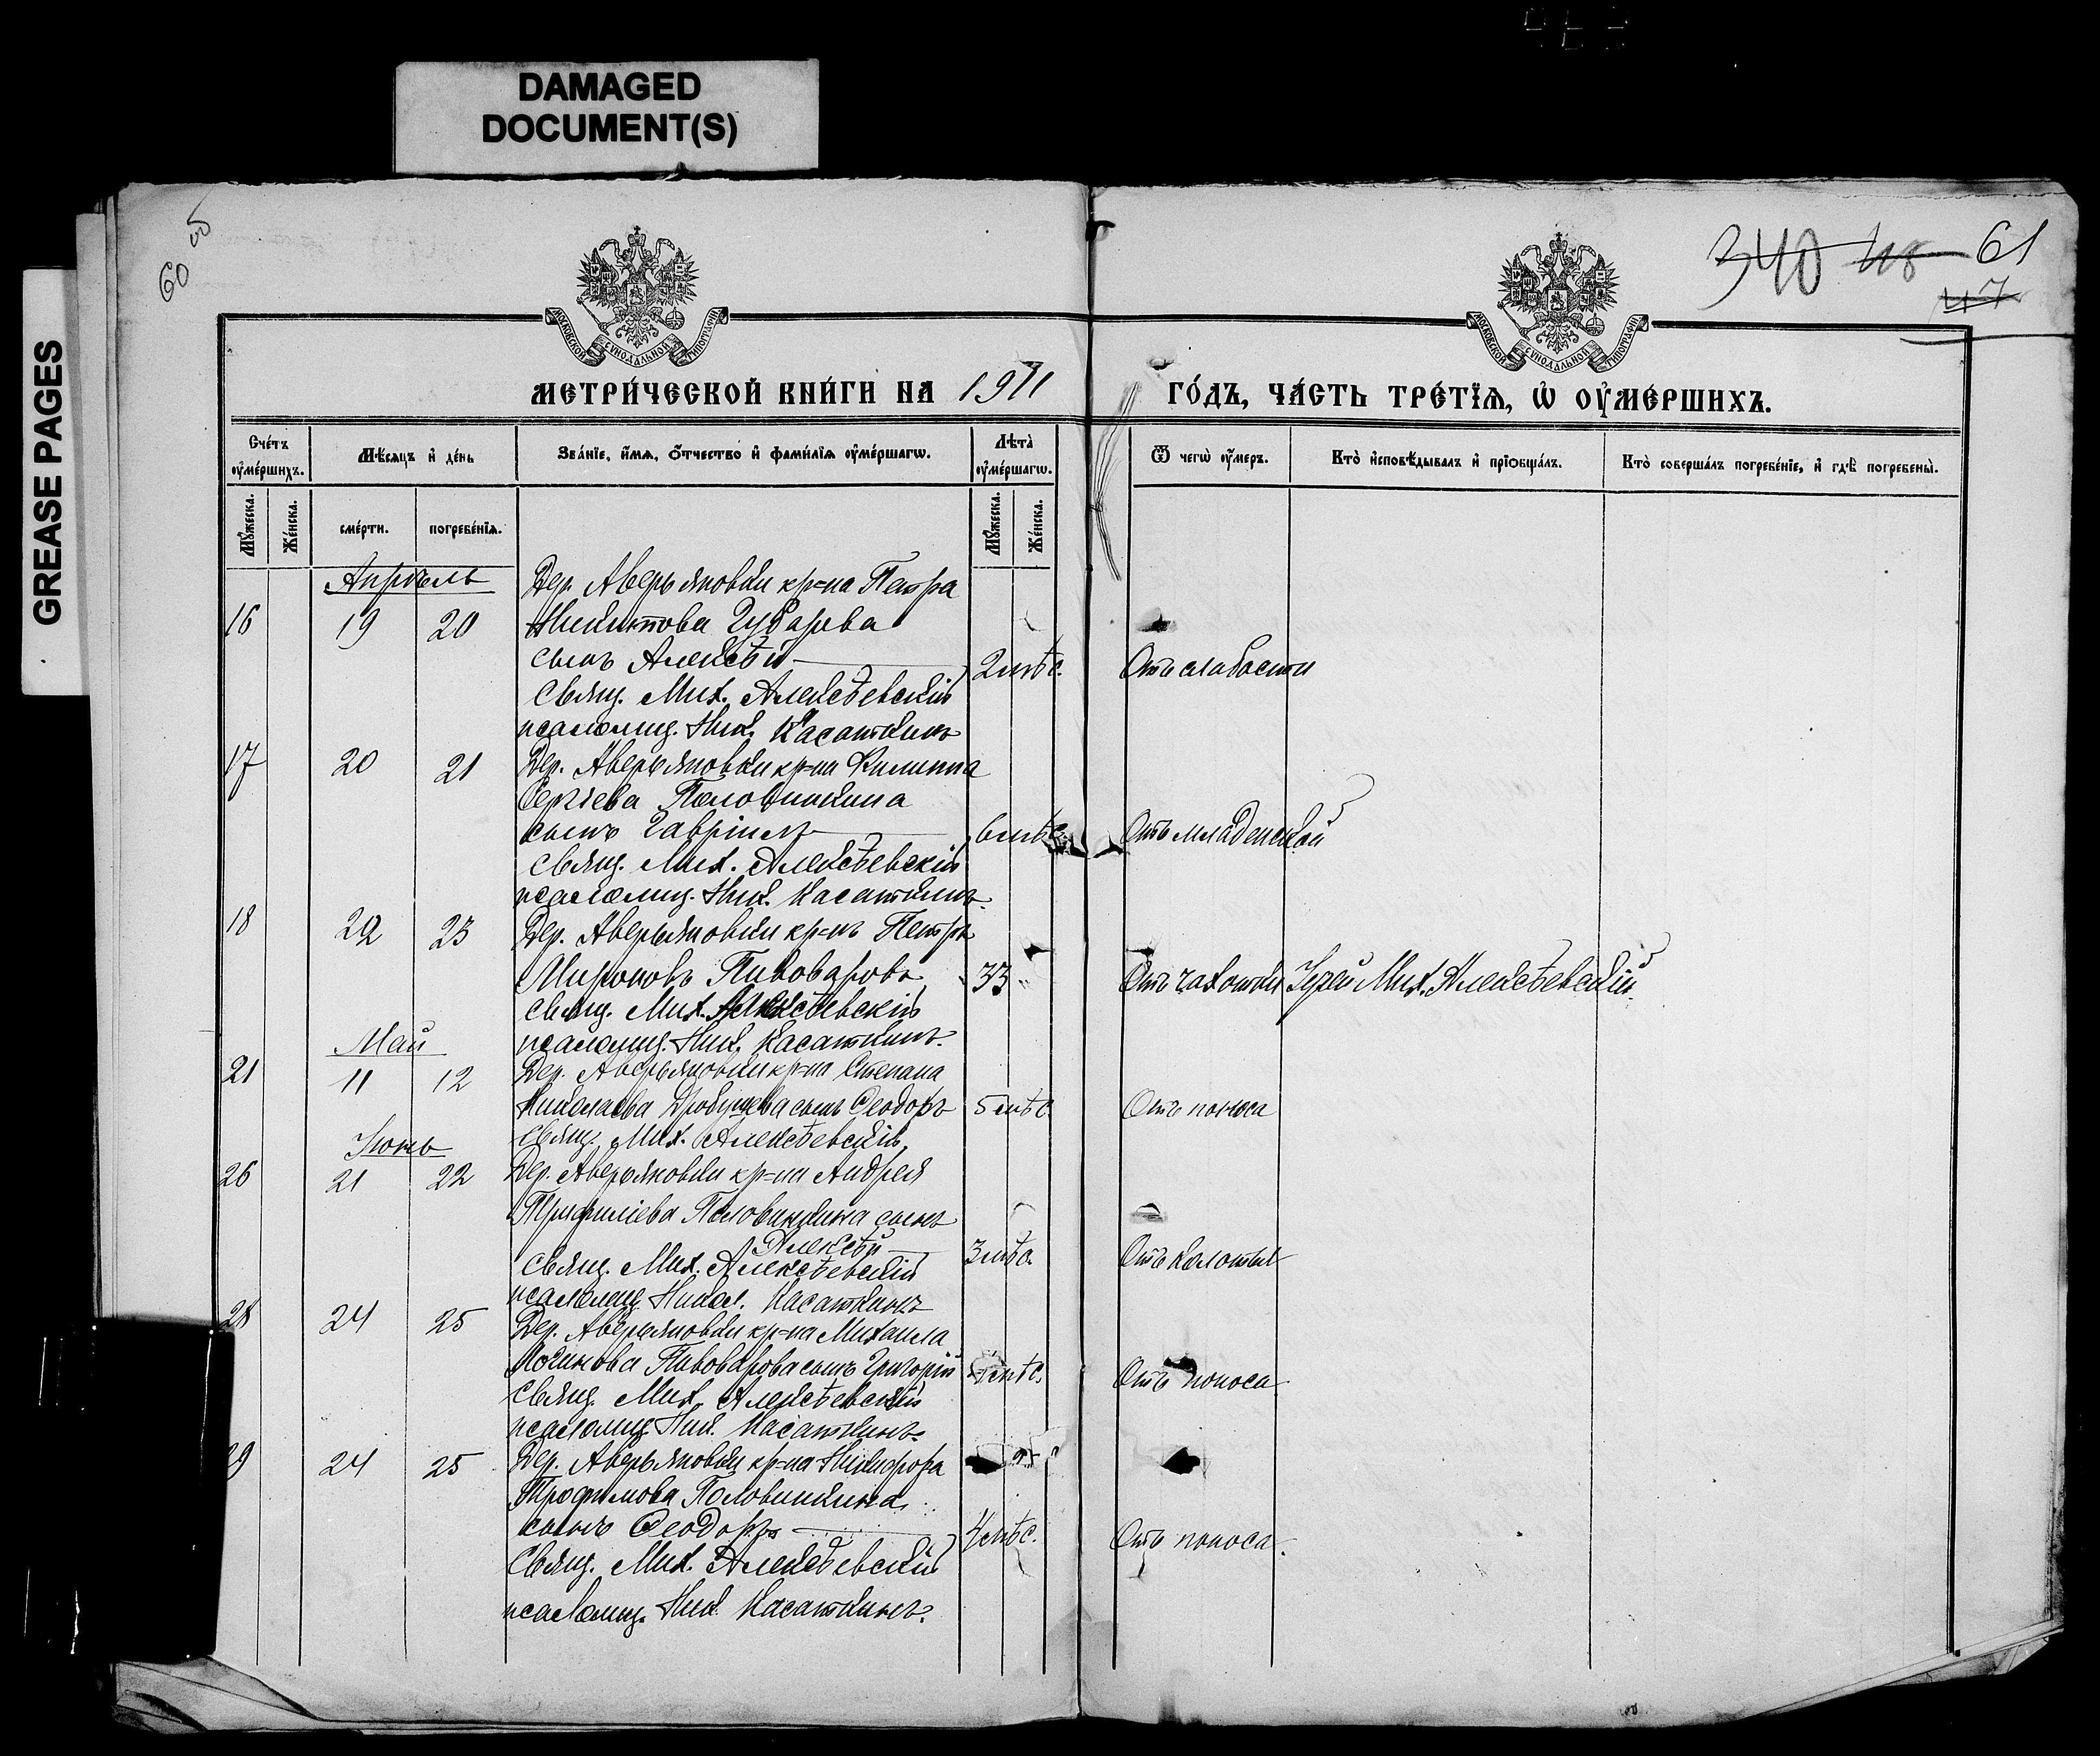 DAMAGED
DOCUMENT(S)
GREASE PAGES
60
340 48 61
47
МОСКОВСКОЙ СУНОДАЛЬНОЙ ТИПОГРАФІИ
МОСКОВСКОЙ СУНОДАЛЬНОЙ ТИПОГРАФІИ
МЕТРИ́ЧЕСКОЙ КНИ́ГИ НА 1911 ГО́ДЪ, ЧА́СТЬ ТРЕ́ТІѦ, Ѡ҆ ОУ҆МЕ́РШИХЪ.
Сче́тъ оу҆ме́ршихъ.
Мѣ́сяцъ и҆ де́нь
Зва́нїе, и҆́мѧ, ѻ҆́тчество и҆ фами́лїѧ оу҆ме́ршагѡ.
Лѣ́та оу҆ме́ршагѡ.
Ѿ чегѡ̀ оу҆́меръ.
Кто̀ и҆сповѣ́дывалъ и҆ прїѡбща́лъ.
Кто̀ соверша́лъ погребе́нїе, и҆ гдѣ̀ погребены̀.
Мꙋ́жеска.
Же́нска.
сме́рти.
погребе́нїя.
Мꙋ́жеска.
Же́нска.
Апрѣль
Дер. Аверьяновки кр=на Петра
16 19 20 Никитова Губарева
сынъ Алексѣй 2 мѣс. Отъ слабости
Свящ. Мих. Алексѣевскій
псаломщ. Ник. Касаткинъ
17 20 21 Дер. Аверьяновки кр=на Филиппа
Сергѣева Половинкина
сынъ Гавріилъ 6 мѣс. Отъ младенской
Свящ. Мих. Алексѣевскій
псаломщ. Ник. Касаткинъ.
18 22 23 Дер. Аверьяновки кр=нъ Петръ
Мироновъ Пивоваровъ 33 Отъ чахотки Іерей Мих. Алексѣевскій.
свящ. Мих. Алексѣевскій
псаломщ. Ник. Касаткинъ.
Май
21 11 12 Дер. Аверьяновки кр=на Степана
Николаева сынъ Ѳеодоръ 5 мѣс. Отъ поноса
свящ. Мих. Алексѣевскій
Іюнь
26 21 22 Дер. Аверьяновки кр=на Андрея
Трифиліева Половинкина сынъ
Алексѣй 3 мѣс. Отъ колотья
свящ. Мих. Алексѣевскій
псаломщ. Никол. Касаткинъ
28 24 25 Дер. Аверьяновки кр=на Михаила
Логинова Пивоварова сынъ Григорій мѣс. Отъ поноса
Свящ. Мих. Алексѣевскій
псаломщ. Ник. Касаткинъ.
29 24 25 Дер. Аверьяновки кр=на Никифора
Трофимова Половинкина
сынъ Ѳеодоръ 4 мѣс. Отъ поноса.
Свящ. Мих. Алексѣевскій
псаломщ. Ник. Касаткинъ.